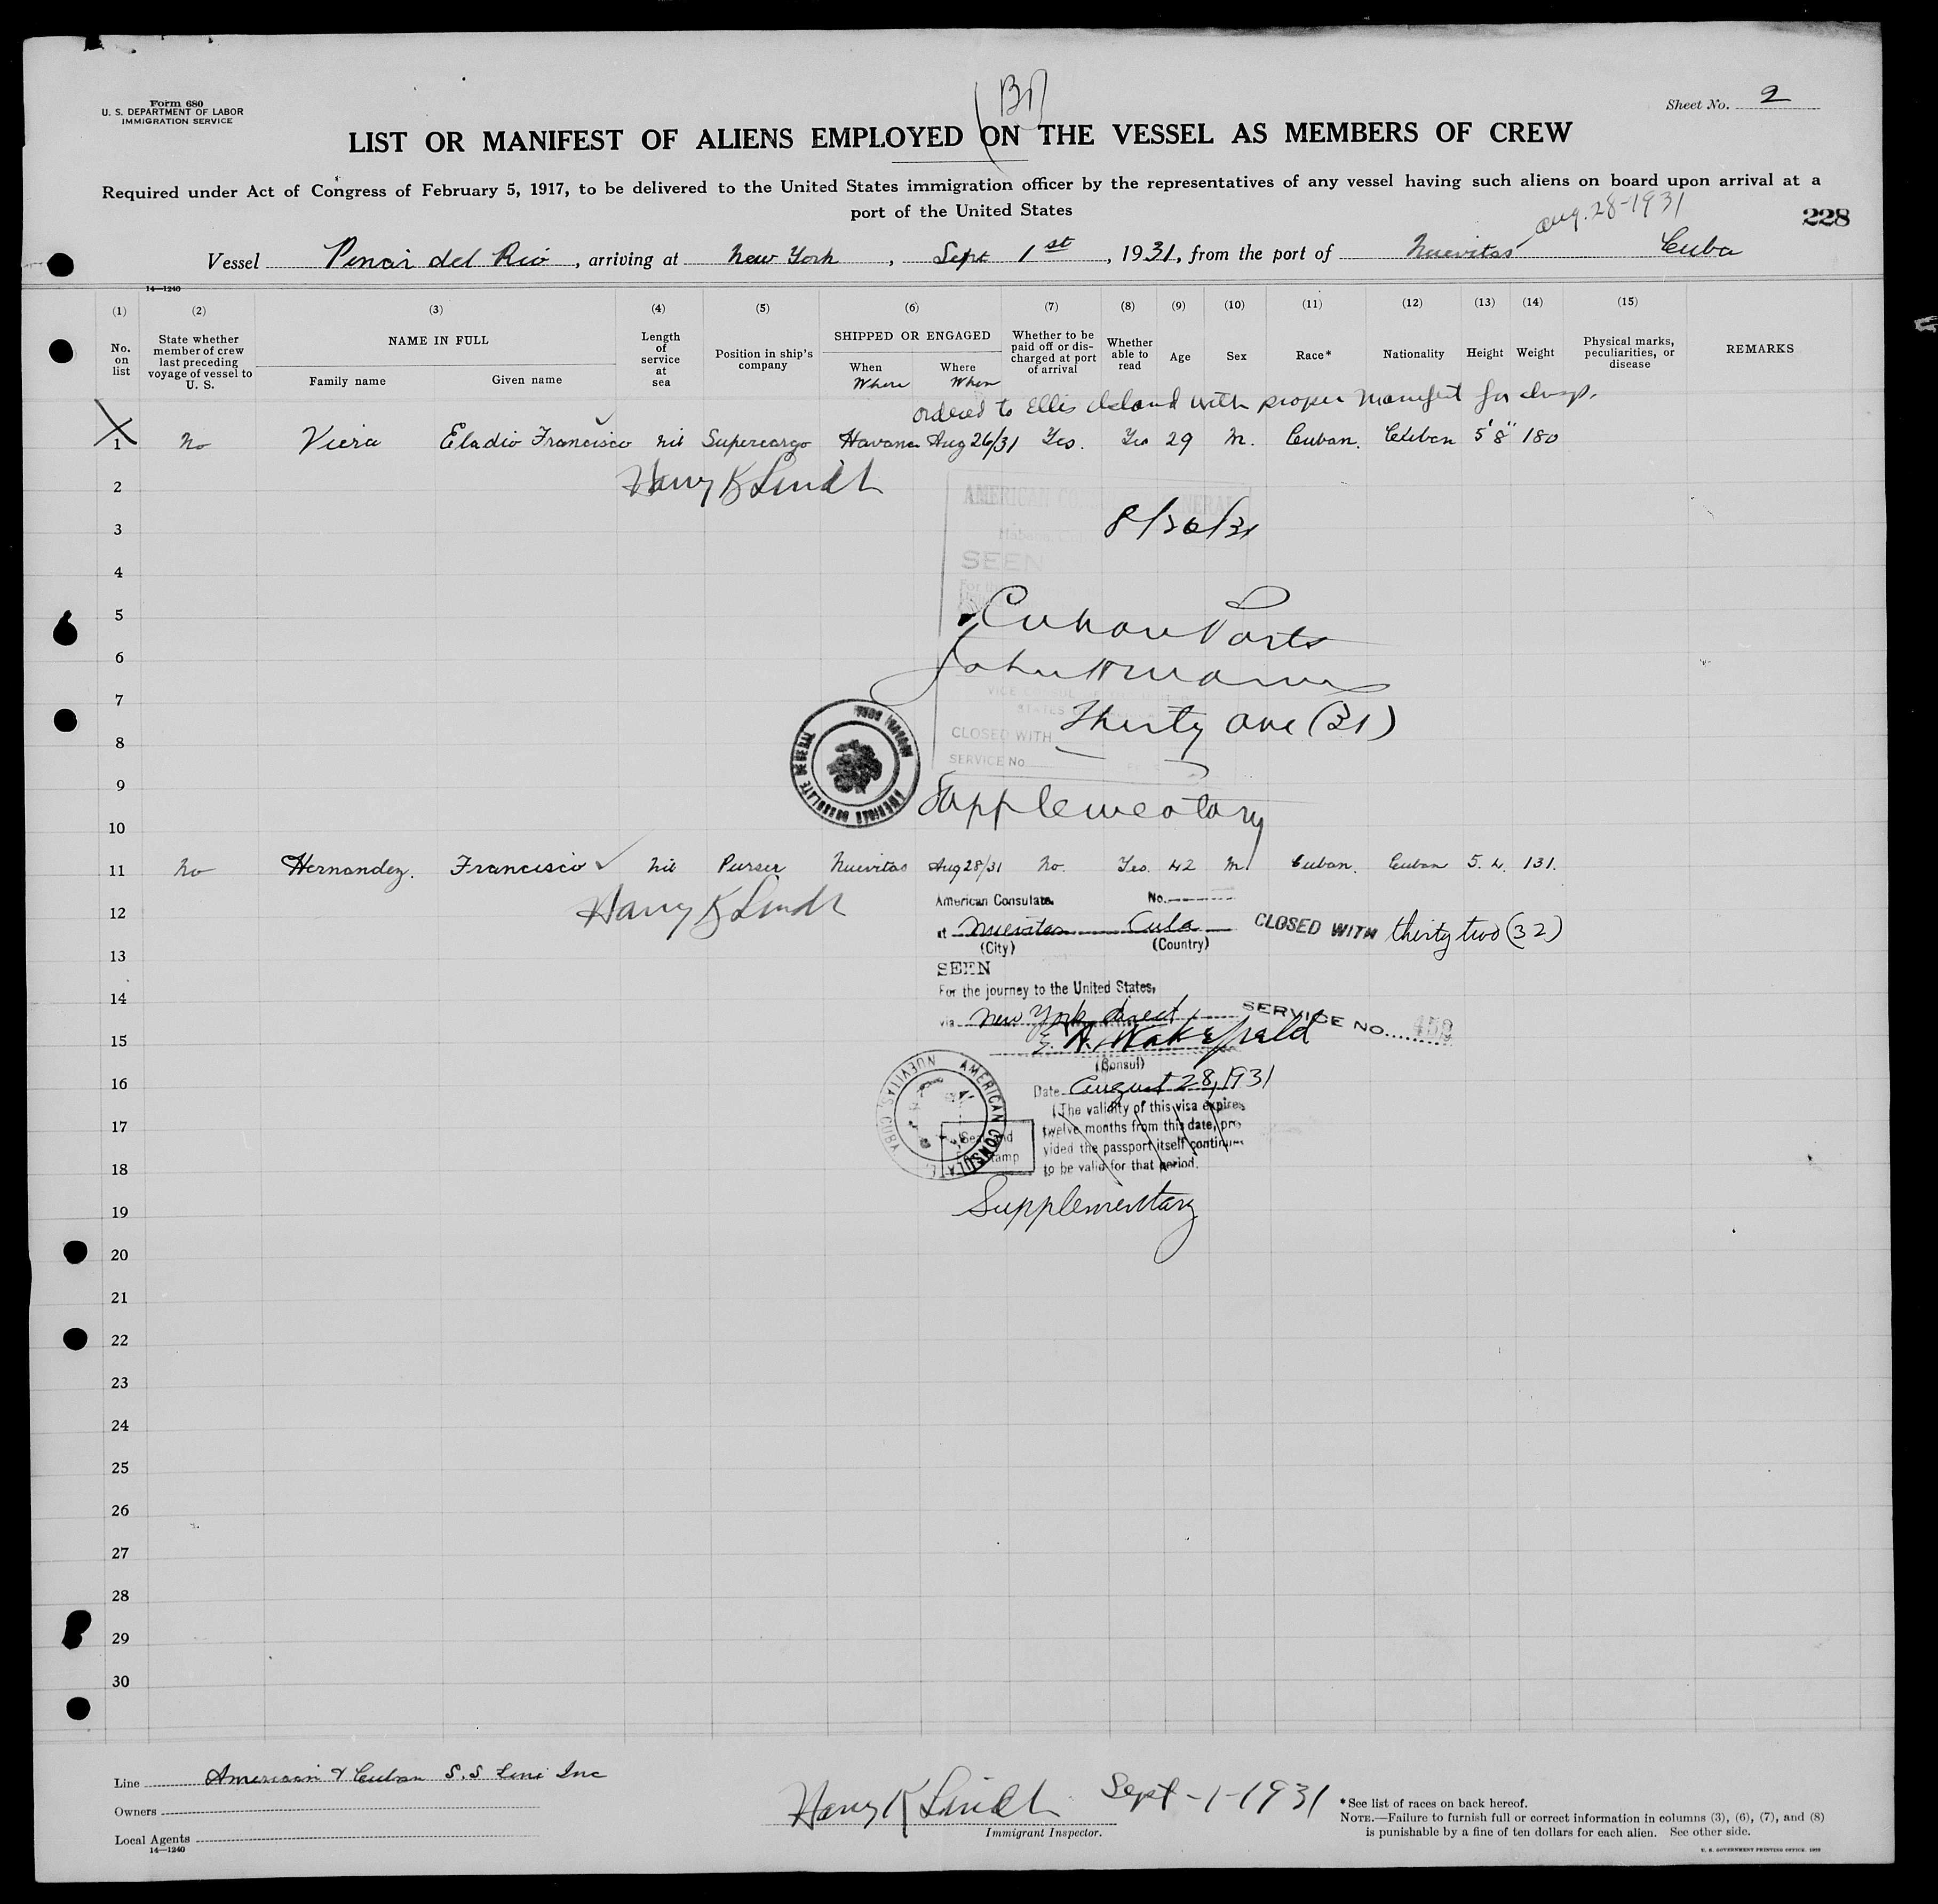 Form 680
U. S. DEPARTMENT OF LABOR
IMMIGRATION SERVICE
Sheet No. 2
LIST OR MANIFEST OF ALIENS EMPLOYED ON THE VESSEL AS MEMBERS OF CREW
Required under Act of Congress of February 5, 1917, to be delivered to the United States immigration officer by the representatives of any vessel having such aliens on board upon arrival at a
port of the United States
Aug. 28-1931
228
Vessel Pinar del Rio, arriving at New York, Sept 1st, 1931, from the port of Nuevitas Cuba
14—1240
(1) (2) (3) (4) (5) (6) (7) (8) (9) (10) (11) (12) (13) (14) (15)
No. on list
State whether member of crew last preceding voyage of vessel to U. S.
NAME IN FULL
Family name Given name
Length of service at sea
Position in ship's company
SHIPPED OR ENGAGED
When Where
Where When
Whether to be paid off or discharged at port of arrival
Whether able to read
Age
Sex
Race*
Nationality
Height
Weight
Physical marks, peculiarities, or disease
REMARKS
ordered to Ellis Island with proper manifest for
1 No Viera Eladio Francisco nil Supercargo Havana Aug 26/31 Yes. Yes 29 M. Cuban. Cuban 5' 8" 180
2 Harry K Lindt
AMERICAN CONSULATE GENERAL
3 8/26/31
Habana, Cuba
4 SEEN
5 Cuban Ports
6
7 Thirty one (31)
8 CLOSED WITH
SERVICE No
AMERICAN CONSULATE GENERAL
9 Supplementary
10
11 No Hernandez. Francisco nil Purser Nuevitas Aug 28/31 No. Yes. 42 M. Cuban. Cuban 5. 4. 131.
12 Harry K Lindt
American Consulate. No.
at Nuevitas Cuba CLOSED WITH thirty two (32)
(City) (Country)
13 SEEN
14 For the journey to the United States,
via New York direct SERVICE NO. 459
15 E. A. Wakefield
(Consul)
16 Date August 28, 1931
(The validity of this visa expires
17 twelve months from this date, pro
vided the passport itself continues
18 to be valid for that period.
AMERICAN CONSULATE NUEVITAS, CUBA
19 Supplementary
20
21
22
23
24
25
26
27
28
29
30
Line American & Cuban S.S Line Inc
Owners
Local Agents
14—1240
Harry K Lindt Sept-1-1931
Immigrant Inspector.
*See list of races on back hereof.
NOTE.—Failure to furnish full or correct information in columns (3), (6), (7), and (8)
is punishable by a fine of ten dollars for each alien. See other side.
U. S. GOVERNMENT PRINTING OFFICE